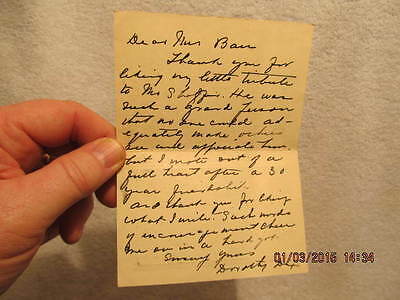 Dear Mrs Barr
Thank you for
liking my little tribute
to Mr Shaffer. He was
such a grand person
that no one could ad-
equately make others
see and appreciate him,
but I wrote out of a
full heart after a 30
year friendship.
And thank you for liking
what I write. Such words
of encouragement cheer
me on in a hard job.
Sincerely yours
Dorothy Dix
01/03/2015 14:34